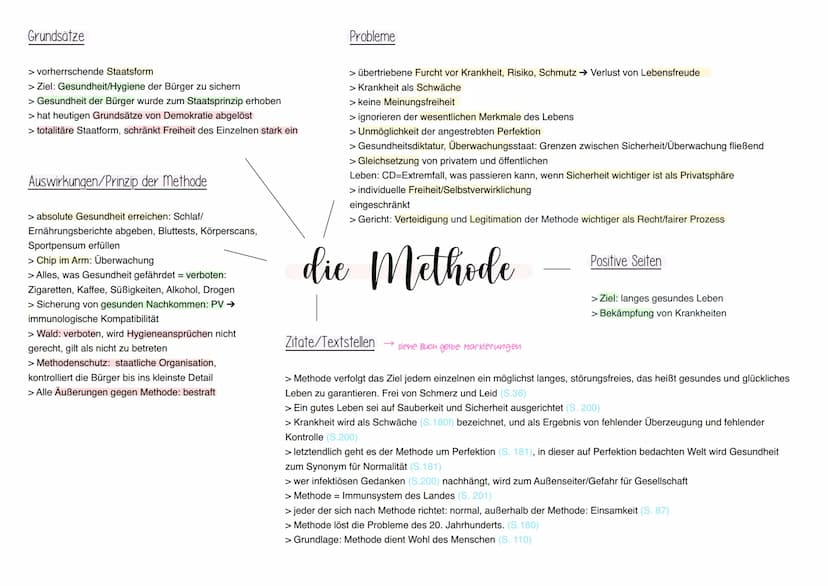 Grundsätze
> vorherrschende Staatsform
> Ziel: Gesundheit/Hygiene der Bürger zu sichern
> Gesundheit der Bürger wurde zum Staatsprinzip erhoben
> hat heutigen Grundsätze von Demokratie abgelöst
> totalitäre Staatform, schränkt Freiheit des Einzelnen stark ein
Probleme
> übertriebene Furcht vor Krankheit, Risiko, Schmutz → Verlust von Lebensfreude
> Krankheit als Schwäche
> keine Meinungsfreiheit
> ignorieren der wesentlichen Merkmale des Lebens
> Unmöglichkeit der angestrebten Perfektion
> Gesundheitsdiktatur, Überwachungsstaat: Grenzen zwischen Sicherheit/Überwachung fließend
> Gleichsetzung von privatem und öffentlichen
Leben: CD=Extremfall, was passieren kann, wenn Sicherheit wichtiger ist als Privatsphäre
> individuelle Freiheit/Selbstverwirklichung
eingeschränkt
> Gericht: Verteidigung und Legitimation der Methode wichtiger als Recht/fairer Prozess
Auswirkungen/Prinzip der Methode
> absolute Gesundheit erreichen: Schlaf/
Ernährungsberichte abgeben, Bluttests, Körperscans,
Sportpensum erfüllen
> Chip im Arm: Überwachung
> Alles, was Gesundheit gefährdet = verboten:
Zigaretten, Kaffee, Süßigkeiten, Alkohol, Drogen
> Sicherung von gesunden Nachkommen: PV →
immunologische Kompatibilität
> Wald: verboten, wird Hygieneansprüchen nicht
gerecht, gilt als nicht zu betreten
> Methodenschutz: staatliche Organisation,
kontrolliert die Bürger bis ins kleinste Detail
> Alle Äußerungen gegen Methode: bestraft
die Methode
Positive Seiten
> Ziel: langes gesundes Leben
> Bekämpfung von Krankheiten
Zitate/Textstellen → siehe Buch gelbe Markierungen
> Methode verfolgt das Ziel jedem einzelnen ein möglichst langes, störungsfreies, das heißt gesundes und glückliches
Leben zu garantieren. Frei von Schmerz und Leid (S.36)
> Ein gutes Leben sei auf Sauberkeit und Sicherheit ausgerichtet (S. 200)
> Krankheit wird als Schwäche (S.180f) bezeichnet, und als Ergebnis von fehlender Überzeugung und fehlender
Kontrolle (S.200)
> letztendlich geht es der Methode um Perfektion (S. 181), in dieser auf Perfektion bedachten Welt wird Gesundheit
zum Synonym für Normalität (S.181)
> wer infektiösen Gedanken (S.200) nachhängt, wird zum Außenseiter/Gefahr für Gesellschaft
> Methode = Immunsystem des Landes (S. 201)
> jeder der sich nach Methode richtet: normal, außerhalb der Methode: Einsamkeit (S. 87)
> Methode löst die Probleme des 20. Jahrhunderts. (S.180)
> Grundlage: Methode dient Wohl des Menschen (S. 110)